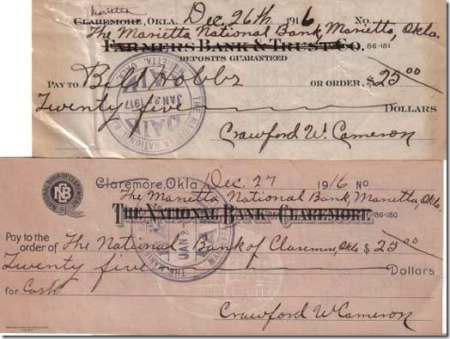 Marietta
CLAREMORE, OKLA. Dec. 26th 1916 No.
The Marietta National Bank, Marietta, Okla.
FARMERS BANK & TRUST CO. 86-181
DEPOSITS GUARANTEED
PAY TO Bill Hobbs OR ORDER, $25.00
Twenty five DOLLARS
PAID
JAN 2 191
Crawford W. Cameron
NCB
Claremore, Okla. Dec. 27 1916 No
The Marietta National Bank, Marietta, Okla.
THE NATIONAL BANK OF CLAREMORE 86-180
Pay to the
order of The National Bank of Claremore, Okla $25.00
Twenty five Dollars
for Cash
JAN 2
Crawford W Cameron